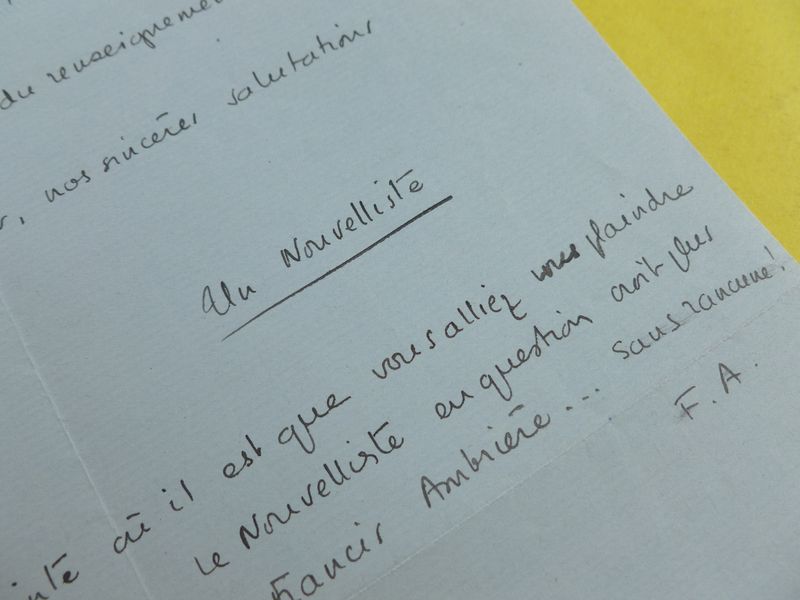 du renseigneme
, nos sincères salutations
Un Nouvelliste
où il est que vous alliez vous plaindre
le Nouvelliste en question avait plus
Francis Ambrière... sans rancune!
F.A.